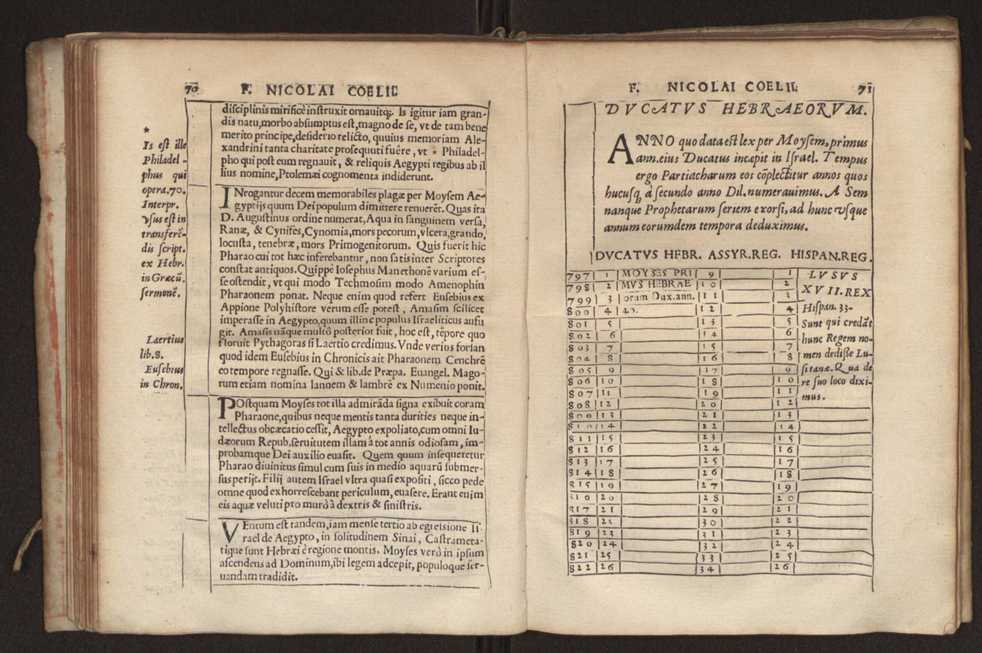 70 F. NICOLAI COELII
disciplinis mirificè instruxit ornauitq;. Is igitur iam gran-
dis natu, morbo absumptus est, magno de se, vt de tam bene
merito principe, desiderio relicto, quuius memoriam Ale-
xandrini tanta charitate prosequuti fuêre, vt * Philadel-
pho qui post eum regnauit, & reliquis Aegypti regibus ab il
lius nomine, Ptolemæi cognomenta indiderunt.
*
Is est ille
Philadel-
phus qui
opera. 70.
Interpr.
vsus est in
transferẽ-
dis script.
ex Hebr.
in Græcũ.
sermonẽ.
INrogantur decem memorabiles plagæ per Moysem Ae-
gyptijs quum Dei populum dimittere renuerẽt. Quas ita
D. Augustinus ordine numerat, Aqua in sanguinem versa,
Ranæ, & Cynifes, Cynomia, mors pecorum, vlcera, grando,
locusta, tenebræ, mors Primogenitorum. Quis fuerit hic
Pharao cui tot hæc inferebantur, non satis inter Scriptores
constat antiquos. Quippè Iosephus Manethonẽ varium es-
se ostendit, vt qui modo Techmosim modo Amenophin
Pharaonem ponat. Neque enim quod refert Eusebius ex
Appione Polyhistore verum esse potest, Amasim scilicet
imperasse in Aegypto, quum illinc populus Israeliticus aufu
git. Amasis nãque multò posterior fuit, hoc est, tẽpore quo
floruit Pythagoras si Laertio credimus. Vnde verius forsan
quod idem Eusebius in Chronicis ait Pharaonem Cenchrẽ
eo tempore regnasse. Qui & lib. de Præpa. Euangel. Mago-
rum etiam nomina Iannem & Iambrẽ ex Numenio ponit.
Laertius
lib. 8.
Eusebius
in Chron.
POstquam Moyses tot illa admirãda signa exibuit coram
Pharaone, quibus neque mentis tanta durities neque in-
tellectus obcæcatio cessit, Aegypto expoliato, cum omni Iu-
dæorum Repub. seruitutem illam à tot annis odiosam, im-
probamque Dei auxilio euasit. Quem quum insequeretur
Pharao diuinitus simul cum suis in medio aquarũ submer-
sus perijt. Filij autem Israel vltra quasi expositi, sicco pede
omne quod exhorrescebant periculum, euasere. Erant enim
eis aquæ veluti pro murò à dextris & sinistris.
VEntum est tandem, iam mense tertio ab egressione Is-
rael de Aegypto, in solitudinem Sinai, Castrameta-
tique sunt Hebræi è regione montis. Moyses verò in ipsum
ascendens ad Dominum, ibi legem adcepit, populoque ser-
uandam tradidit.
F. NICOLAI COELII. 71
DVCATVS HEBRAEORVM.
ANNO quo data est lex per Moysem, primus
ann. eius Ducatus incæpit in Israel. Tempus
ergo Partiacharum eos cõplectitur annos quos
hucusq, à secundo anno Dil. numerauimus. A Sem
nanque Prophetarum seriem exorsi, ad hunc vsque
annum eorumdem tempora deduximus.
DVCATVS HEBR. ASSYR. REG. HISPAN. REG.
797 | 1 | MOYSES PRI | 9 | | 1 |
798 | 2 | MVS HEBRAE | 10 | | 2 |
799 | 3 | orum Dux. ann. | 11 | | 3 |
800 | 4 | 40. | 12 | | 4
801 | 5 | | 13 | | 5
802 | 6 | | 14 | | 6
803 | 7 | | 15 | | 7
804 | 8 | | 16 | | 8
805 | 9 | | 17 | | 9
806 | 10 | | 18 | | 10
807 | 11 | | 19 | | 11
808 | 12 | | 20 | | 12
809 | 13 | | 21 | | 13
810 | 14 | | 22 | | 14
811 | 15 | | 23 | | 15
812 | 16 | | 24 | | 16
813 | 17 | | 25 | | 17
814 | 18 | | 26 | | 18
815 | 19 | | 27 | | 19
816 | 20 | | 28 | | 20
817 | 21 | | 29 | | 21
818 | 22 | | 30 | | 22
819 | 23 | | 31 | | 23
820 | 24 | | 32 | | 24
821 | 25 | | 33 | | 25
822 | 26 | | 34 | | 26
LVSVS
XVII. REX
Hispan. 33.
Sunt qui credãt
hunc Regem no-
men dedisse Lu-
sitanæ. Qua de
re suo loco dixi-
mus.